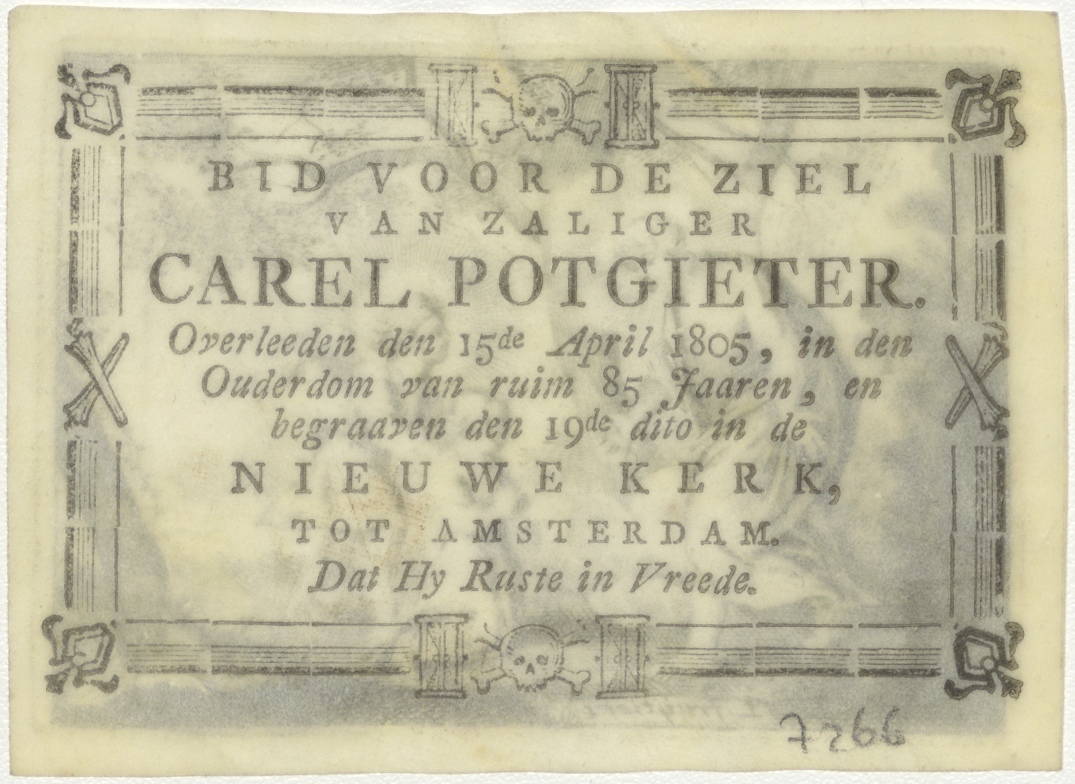 BID VOOR DE ZIEL
VAN ZALIGER
CAREL POTGIETER.
Overleeden den 15de April 1805, in den
Ouderdom van ruim 85 Jaaren, en
begraaven den 19de dito in de
NIEUWE KERK,
TOT AMSTERDAM.
Dat Hy Ruste in Vreede.
7266